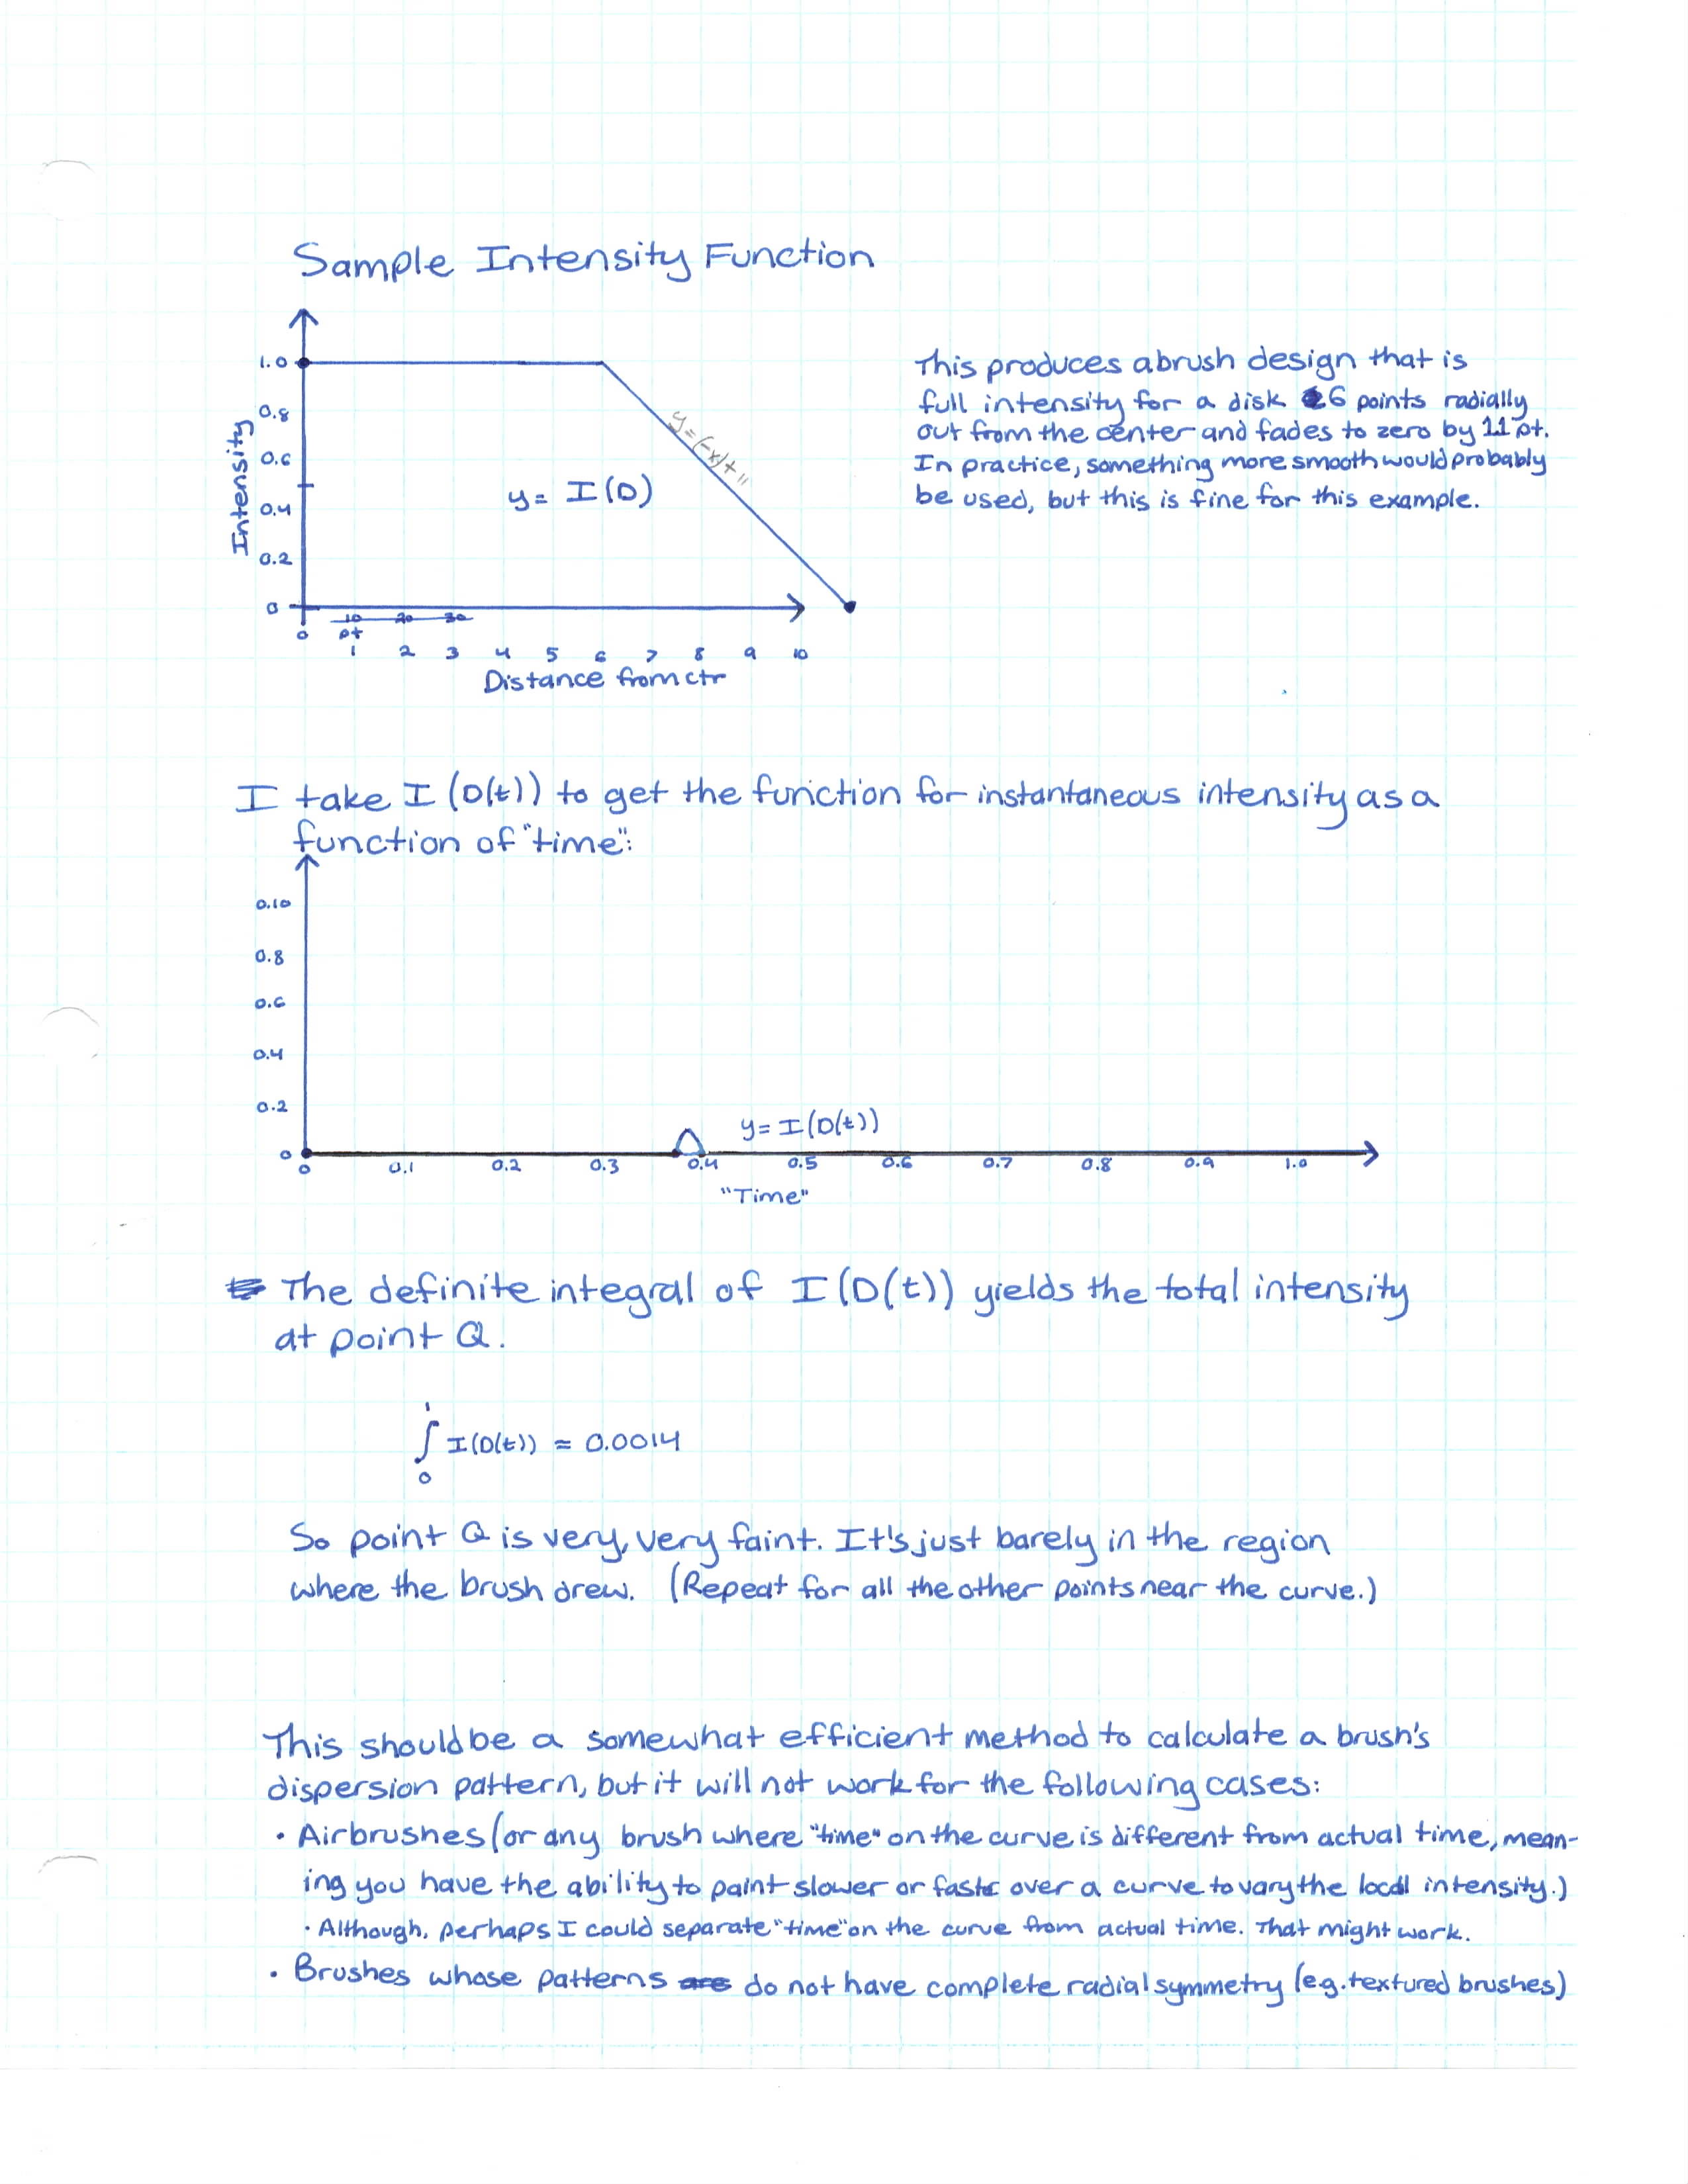 Sample Intensity Function
1.0
0.8
0.6
0.4
0.2
0
Intensity
y=(-x)+11
y= I(D)
0 10 20 30
pt
1 2 3 4 5 6 7 8 9 10
Distance from ctr
This produces a brush design that is
full intensity for a disk 6 points radially
out from the center and fades to zero by 11 pt.
In practice, something more smooth would probably
be used, but this is fine for this example.
I take I (D(t)) to get the function for instantaneous intensity as a
function of "time":
0.10
0.8
0.6
0.4
0.2
0
y= I(D(t))
0 0.1 0.2 0.3 0.4 0.5 0.6 0.7 0.8 0.9 1.0
"Time"
The definite integral of I(D(t)) yields the total intensity
at point Q.
1
∫ I(D(t)) ≈ 0.0014
0
So point Q is very, very faint. It's just barely in the region
where the brush drew. (Repeat for all the other points near the curve.)
This should be a somewhat efficient method to calculate a brush's
dispersion pattern, but it will not work for the following cases:
• Airbrushes (or any brush where "time" on the curve is different from actual time, mean-
ing you have the ability to paint slower or faster over a curve to vary the local intensity.)
• Although, perhaps I could separate "time" on the curve from actual time. That might work.
• Brushes whose patterns are do not have complete radial symmetry (e.g. textured brushes)